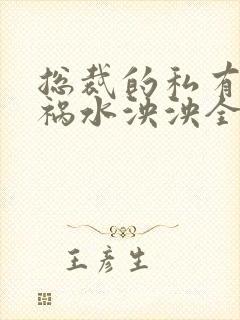 总裁的私有
祸水泱泱全
王彦生